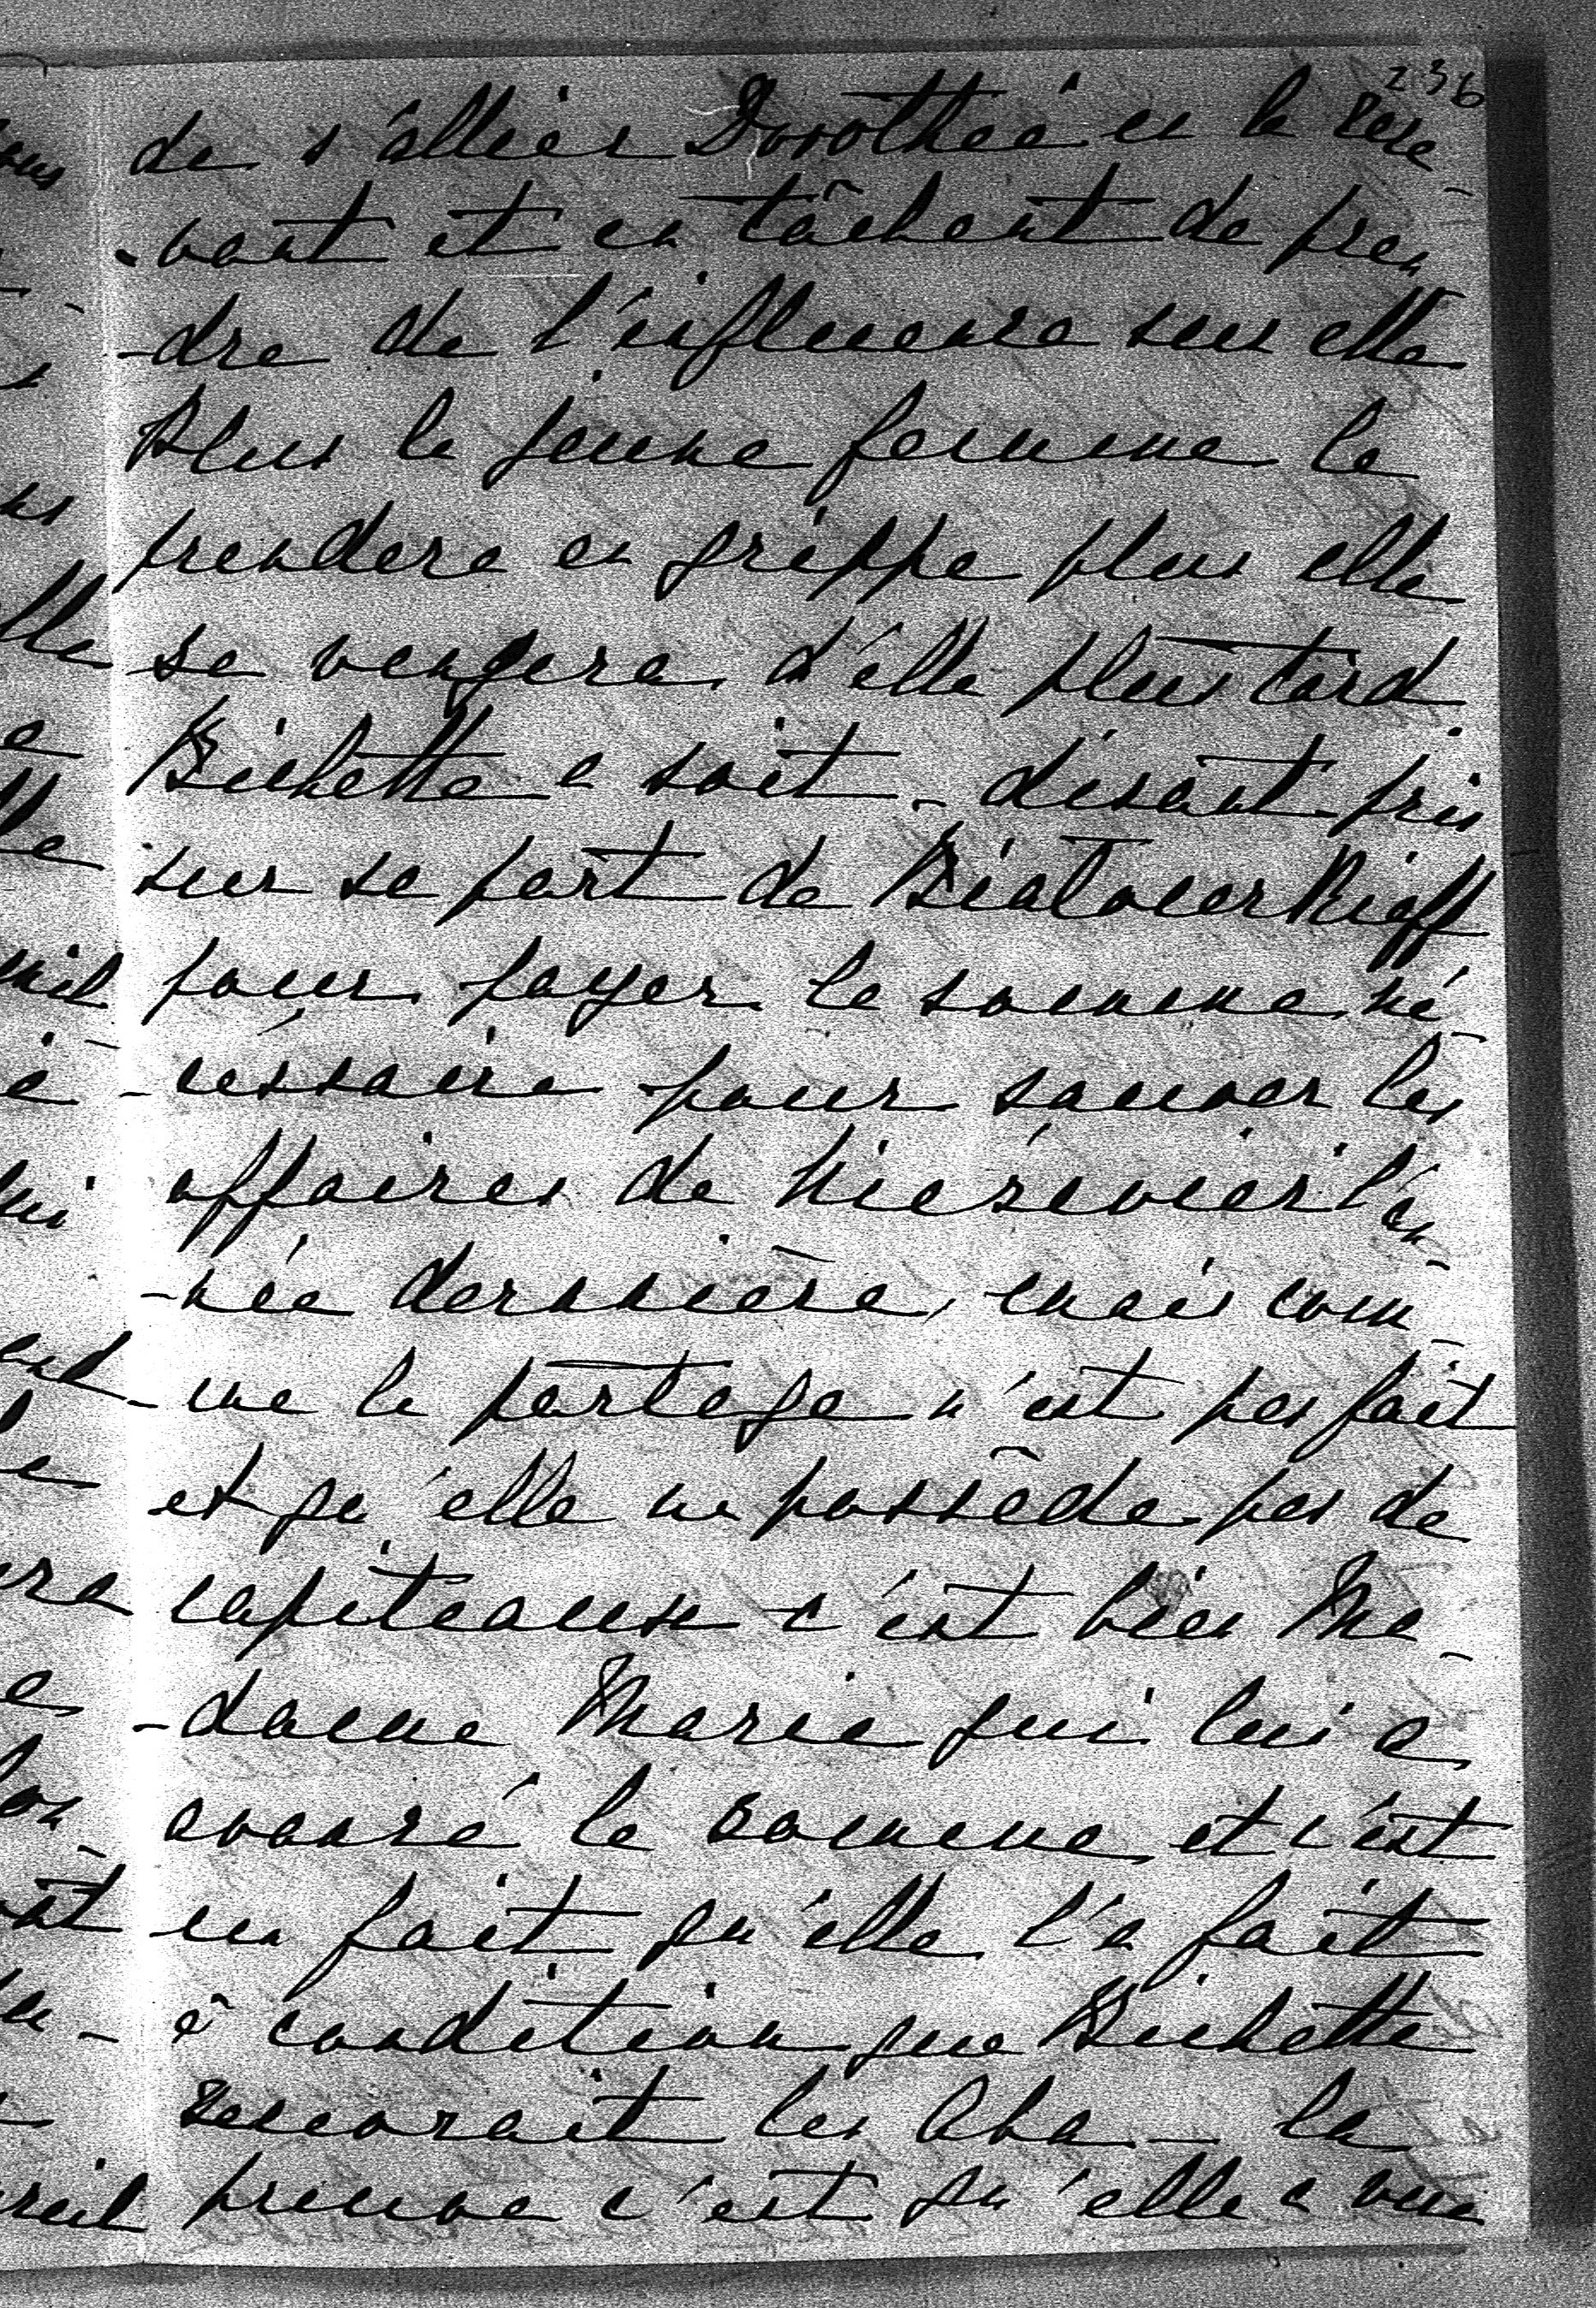 236
de s'allier Dorothée en la rece
-vant et en tâchant de pren
-dre de l'influence sur elle
Plus la jeune femme la
prendera en grippe plus elle
se vengera d'elle plus tard
Bichette a soit-disant pris
sur sa part de Bialocerkieff
pour payer la somme né-
-cessaire pour sauver les
affaires de Niesevież l'an-
-née dernière, mais com-
-me le partage n'est pas fait
et qu'elle ne possède pas de
capiteaux c'est bien Ma-
-dame Marie qui lui a
avancé la somme et c'est
un fait qu'elle l'a fait
à condition que Bichette
recevrait les Aba - la
preuve c'est qu'elle a